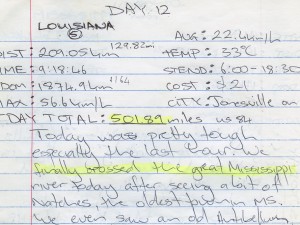 DAY 12
LOUISIANA
5
AVG: 22.4km/h
DIST: 209.05km 129.82mi
TEMP: 33°C
TIME: 9:18:46
STEND: 6:00-18:30
ODOM: 1874.94km 1164
COST: $21
MAX: 56.6km/h
CITY: Jonesville
DAY TOTAL: 501.89 miles US 84
Today was pretty tough
especially the last hour we
finally crossed the great Mississippi
river today after seeing a bit of
Natchez, the oldest town in MS.
We even saw an old Antibellum